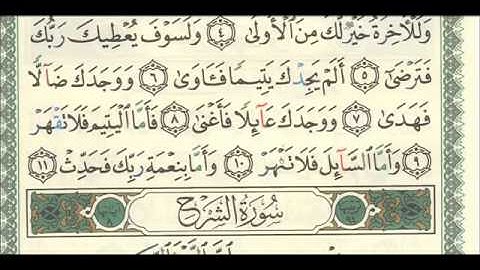 وَلَلْآخِرَةُ خَيْرٌ لَّكَ مِنَ الْأُولَىٰ ٤ وَلَسَوْفَ يُعْطِيكَ رَبُّكَ
فَتَرْضَىٰ ٥ أَلَمْ يَجِدْكَ يَتِيمًا فَآوَىٰ ٦ وَوَجَدَكَ ضَالًّا
فَهَدَىٰ ٧ وَوَجَدَكَ عَائِلًا فَأَغْنَىٰ ٨ فَأَمَّا الْيَتِيمَ فَلَا تَقْهَرْ
٩ وَأَمَّا السَّائِلَ فَلَا تَنْهَرْ ١٠ وَأَمَّا بِنِعْمَةِ رَبِّكَ فَحَدِّثْ ١١
سُورَةُ الشَّرْحِ